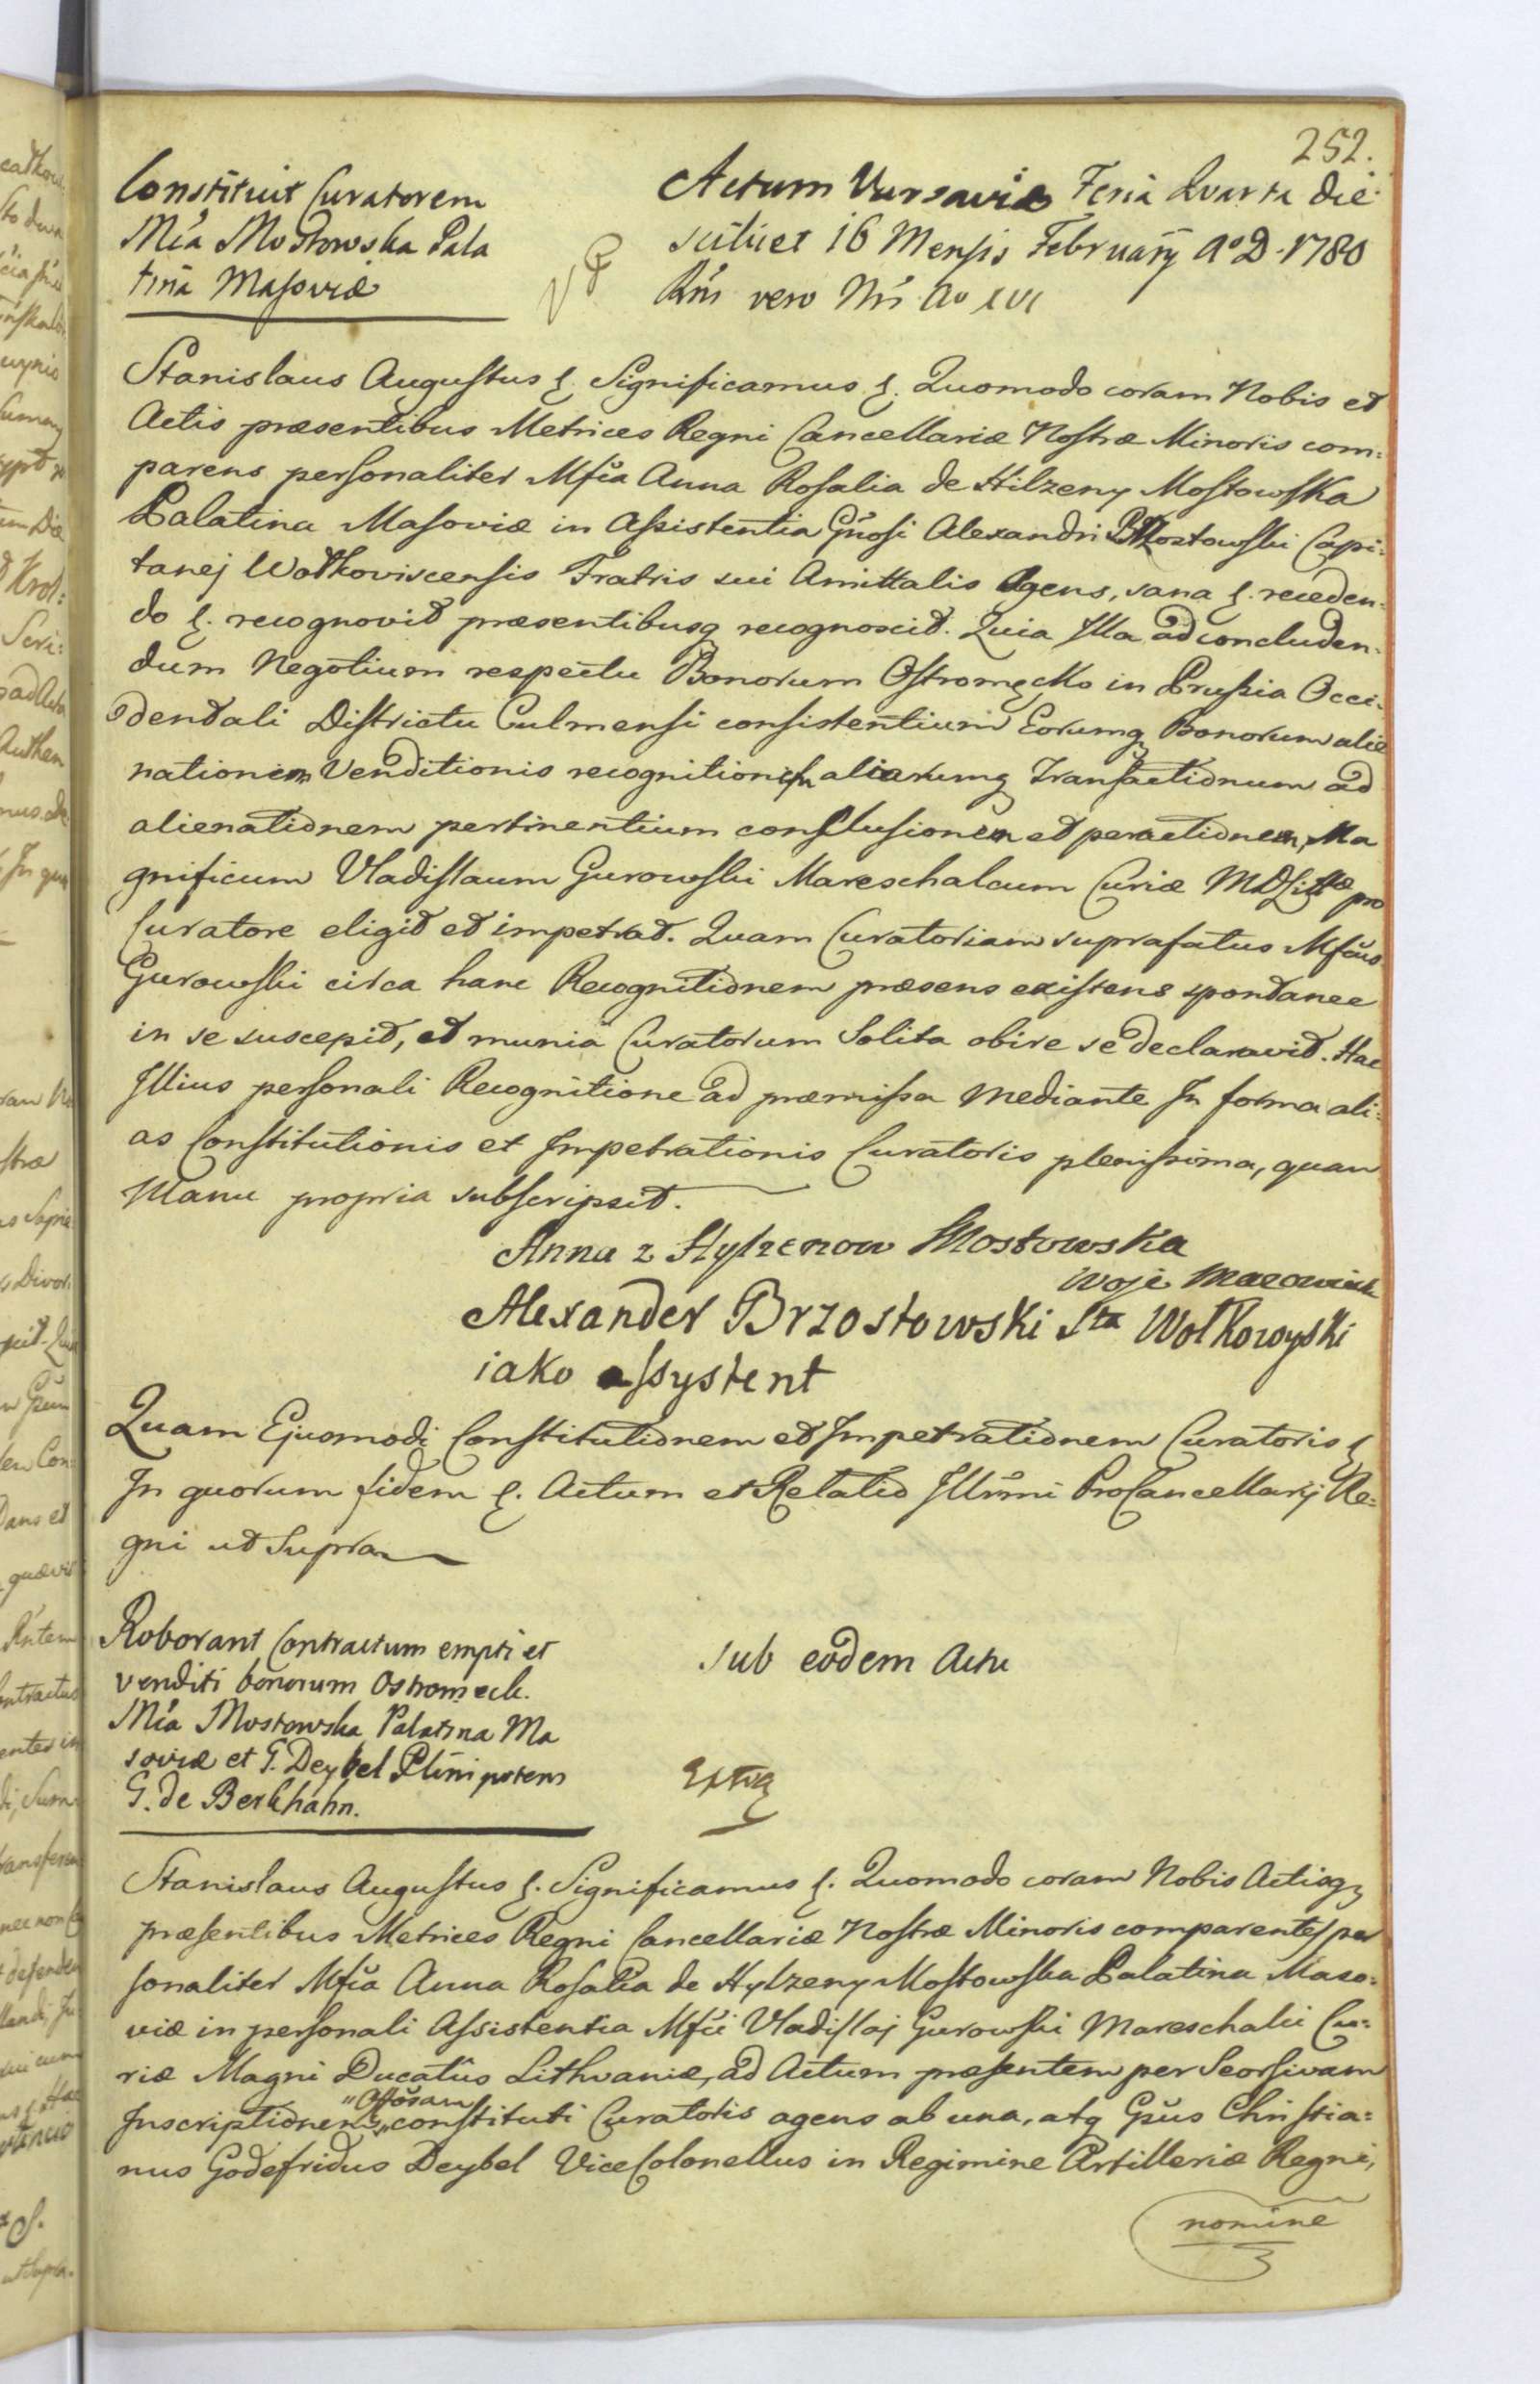 252.
Constituit Curatorem
Mca Mostowska Pala
tina Masoviæ
Actum Varsaviæ Feria Quarta die
scilicet 16 Mensis Februarij Aº D. 1780
Rni vero Nri Aº XVI
Stanislaus Augustus &. Significamus &. Quomodo coram Nobis et
Actis præsentibus Metrices Regni Cancellariæ Nostræ Minoris com:
parens personaliter Mfca Anna Rosalia de Hilzeny Mostowska
Palatina Masoviæ in Assistentia Gnosi Alexandri Brzostowski Capi:
tanej Wołkoviscensis Fratris sui Amittalis Agens, sana &. receden:
do &. recognovit præsentibusq recognoscit. Quia Illa ad concluden:
dum Negotium respectu Bonorum Ostromęcko in Prussia Occi:
dentali Districtu Culmensi consistentium Eorumq Bonorum alie
nationem Venditionis recognitionem aliarumq Transactionum ad
alienationem pertinentium conclusionem et peractionem, Ma
gnificum Vladislaum Gurowski Mareschalcum Curiæ MDLittæ pro
Curatore eligit et impetrat. Quam Curatoriam suprafatus Mfcus
Gurowski circa hanc Recognitionem præsens existens spontanee
in se suscepit, et munia Curatorum Solita obire se declaravit. Hac
Illius personali Recognitione ad præmissa Mediante In forma ali:
as Constitutionis et Impetrationis Curatoris plenissima, quam
Manu propria subscripsit.
Anna z Hylzenow Mostowska
Woje Mazowiecka
Alexander Brzostowski Sta Wołkowyski
iako assystent
Quam Ejusmodi Constitutionem et Impetrationem Curatoris &
In quorum fidem &. Actum et Relatio Illrmi ProCancellarij Re:
gni ut Supra
Roborant Contractum empti et
venditi bonorum Ostromeck.
Mca Mostowska Palatina Ma
soviæ et G. Deybel Plenipotens
G. de Berkhahn.
sub eodem Actu
Extrq
Stanislaus Augustus &. Significamus &. Quomodo coram Nobis Actisq
præsentibus Metrices Regni Cancellariæ Nostræ Minoris comparentes per
sonaliter Mfca Anna Rosalia de Hylzeny Mostowska Palatina Maso:
viæ in personali Assistentia Mfci Vladislaj Gurowski Mareschalci Cu:
riæ Magni Ducatûs Lithvaniæ, ad Actum præsentem per Seorsivam
Inscriptionem constituti Curatoris agens ab una, atq Gnus Christia:
nus Godefridus Deybel ViceColonellus in Regimine Artilleriæ Regni,
nomine